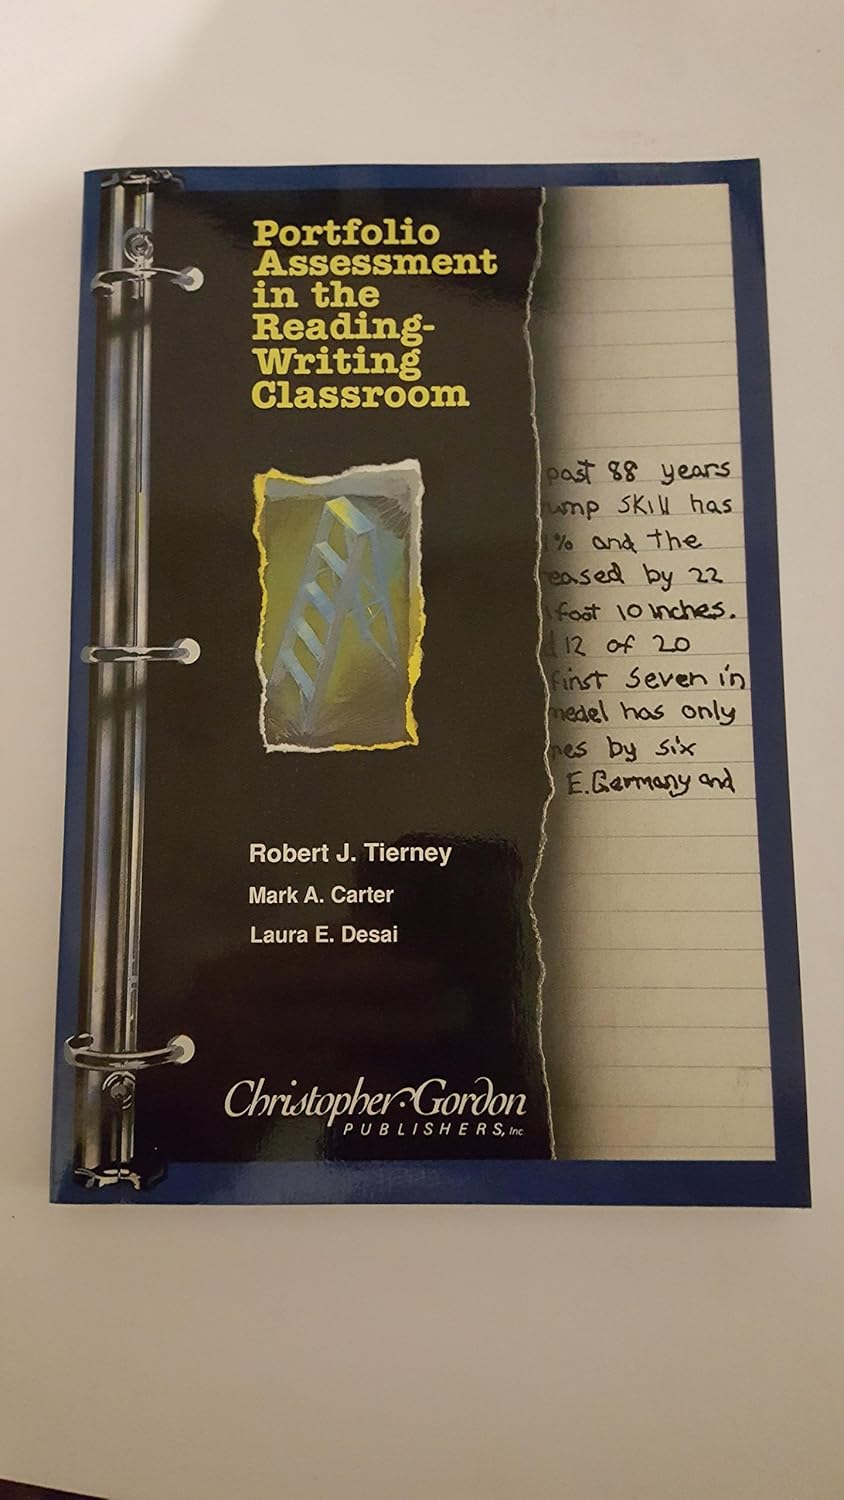 Portfolio
Assessment
in the
Reading-
Writing
Classroom
past 88 years
ump skill has
% and the
eased by 22
foot 10 inches.
12 of 20
first seven in
medel has only
nes by six
E. Germany and
Robert J. Tierney
Mark A. Carter
Laura E. Desai
Christopher-Gordon
PUBLISHERS, Inc.